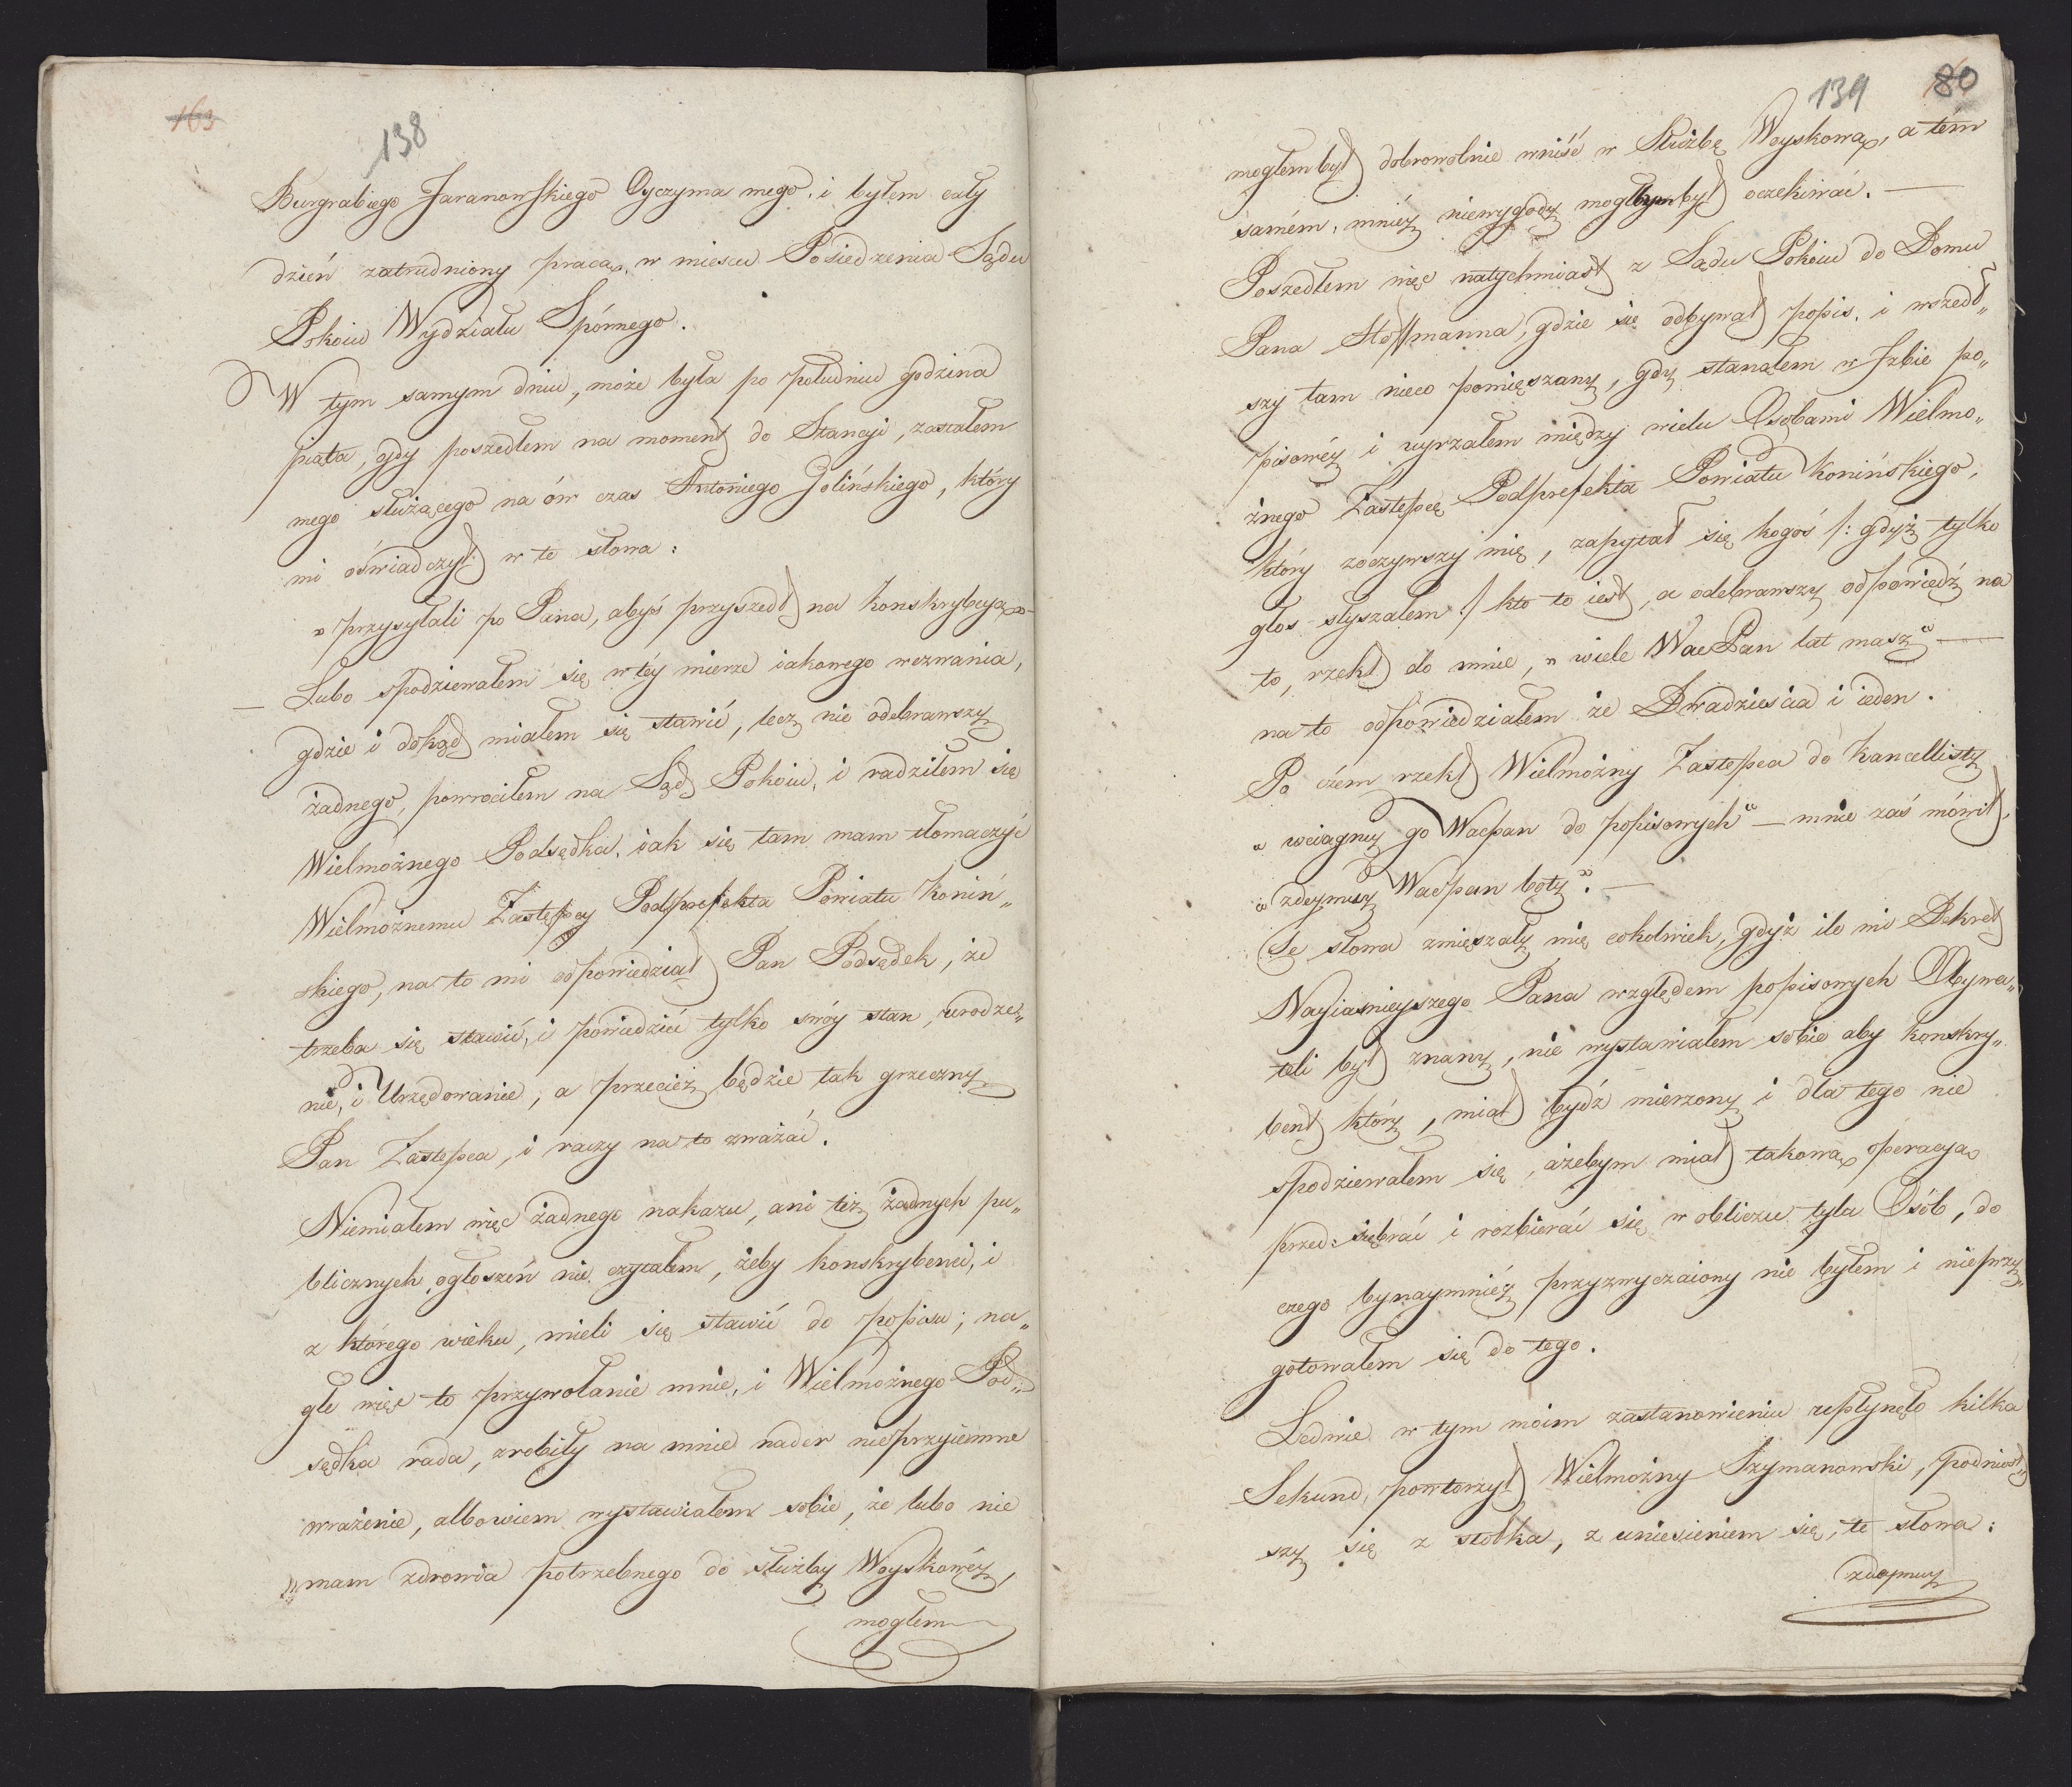 163
138
Burgrabiego Jaranowskiego Oyczyma mego, i byłem cały
dzień zatrudniony pracą, w miescu Posiedzenia Sądu
Pokoiu Wydziału Spórnego.
W tym samym dniu, może była po południu godzina
piąta, gdy poszedłem na moment do Stancyi, zastałem
mego służącego na ów czas Antoniego Jolińskiego, który
mi oświadczył w te słowa:
„przysyłali po Pana, abyś przyszedł na konskrybcyą"
— Lubo spodziewałem się w téy mierze iakowego wezwania,
gdzie i dokąd miałem się stawić, lecz nie odebrawszy
żadnego, powrociłem na Sąd Pokoiu, i radziłem się
Wielmożnego Podsędka, iak się tam mam tłomaczyć
Wielmożnemu Zastępcy Podprefekta Powiatu Koniń„
skiego, na to mi odpowiedział Pan Podsędek, że
trzeba się stawić, i powiedzić tylko swóy stan, urodze„
nie, i Urzędowanie, a przecież będzie tak grzeczny
Pan Zastępca, i raczy na to zważać.
Niemiałem więc żadnego nakazu, ani też żadnych pu„
blicznych ogłoszeń nie czytałem, żeby konskrybenci, i
z którego wieku, mieli się stawić do popisu; na„
głe więc to przywołanie mnie, i Wielmożnego Pod„
sędka rada, zrobiły na mnie nader nieprzyiemne
wrażenie, albowiem wystawiałem sobie, że lubo nie
mam zdrowia potrzebnego do służby Woyskowéy,
mogłem
139 80
mogłem był dobrowolnie wniść w Służbę Woyskową, a tém
samém, mniéy niewygody mogłbym był oczekiwać. —
Poszedłem więc natychmiast z Sądu Pokoiu do Domu
Pana Hoffmanna, gdzie się odbywał popis, i wszedł„
szy tam nieco pomięszany, gdy stanąłem w Izbie po„
pisowéy i uyrzałem między wielu Osobami Wielmo„
żnego Zastępcę Podprefekta Powiatu Konińskiego,
który zoczywszy mię, zapytał się kogoś /: gdyż tylko
głos słyszałem :/ kto to iest, a odebrawszy odpowiedź na
to, rzekł do mnie, „wiele WacPan lat masz" —
na to odpowiedziałem że Dwadzieścia i ieden.
Po czém rzekł Wielmożny Zastępca do Kancellisty
„wciągniy go Wacpan do popisowych" — mnie zaś mówił,
„zdeymiy Wacpan boty". —
Te słowa zmięszały mię cokolwiek, gdyż ile mi Dekret
Nayiaśnieyszego Pana względem popisowych Obywa„
teli był znany, nie wystawiałem sobie aby konskry„
bent który, miał bydź mierzony i dla tego nie
spodziewałem się, ażebym miał takową operacyą
przed siębrać i rozbierać się w obliczu tyla Osób, do
czego bynaymniéy przyzwyczaiony nie byłem i nieprzy„
gotowałem się do tego.
Ledwie w tym moim zastanowieniu upłynęło kilka
Sekund, powtorzył Wielmożny Szymanowski, podniosł„
szy się z stołka, z uniesieniem się, te słowa:
zdeymiy